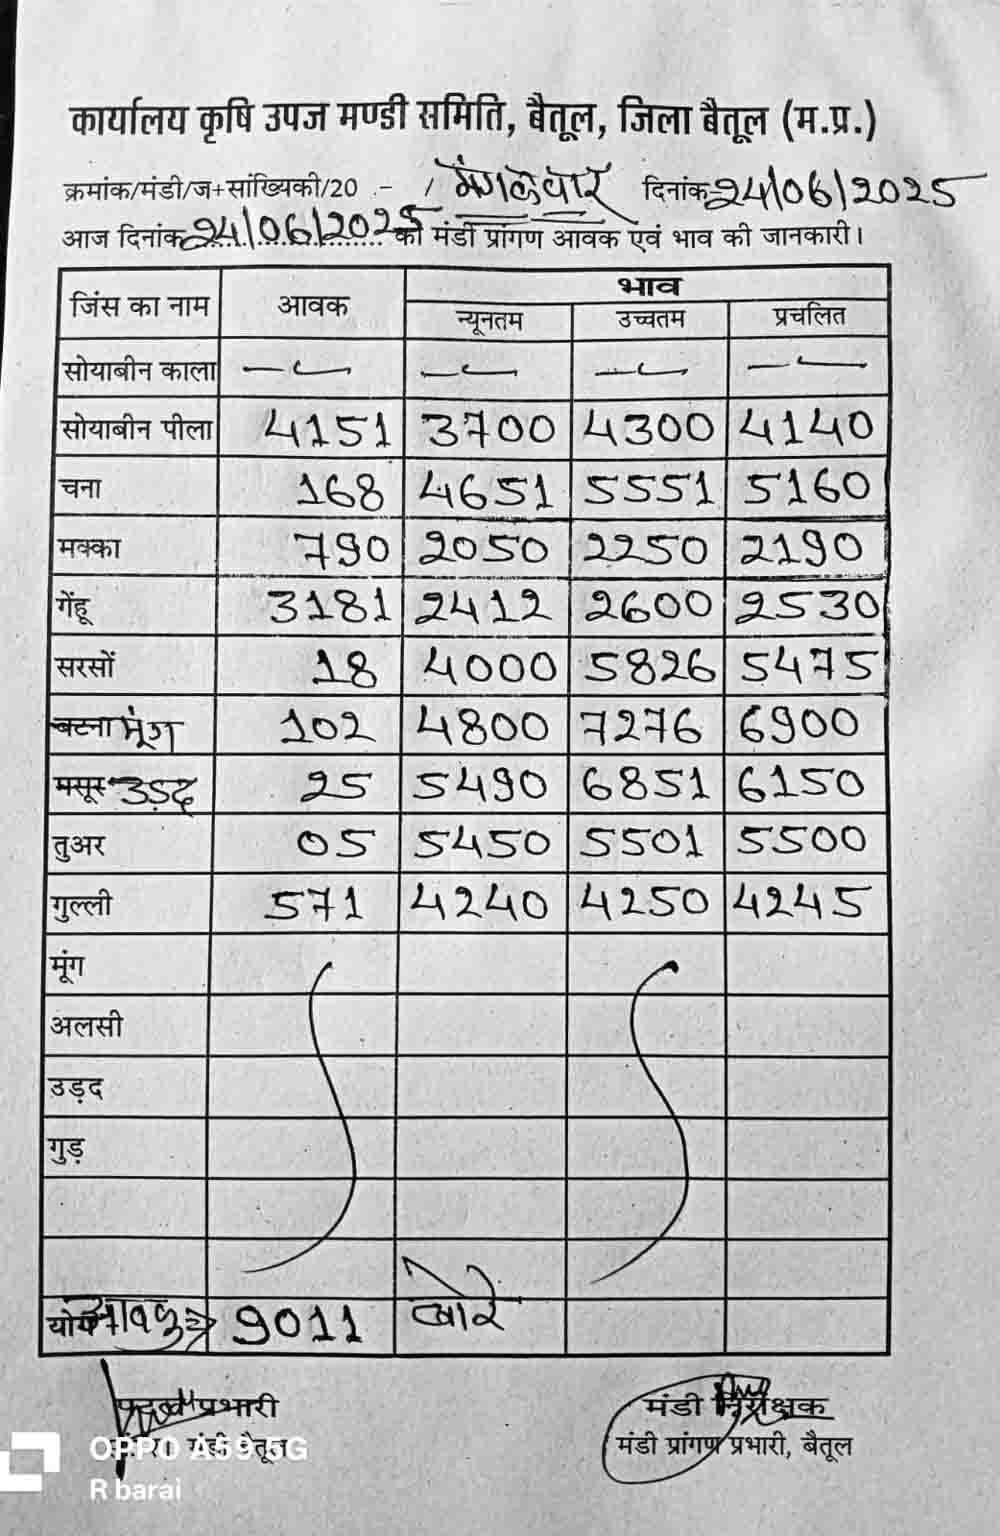 कार्यालय कृषि उपज मण्डी समिति, बैतूल, जिला बैतूल (म.प्र.)
क्रमांक/मंडी/ज+सांख्यिकी/20 - / मंगलवार दिनांक 24/06/2025
आज दिनांक 24/06/2025 को मंडी प्रांगण आवक एवं भाव की जानकारी।
जिंस का नाम आवक भाव
न्यूनतम उच्चतम प्रचलित
सोयाबीन काला — — — —
सोयाबीन पीला 4151 3700 4300 4140
चना 168 4651 5551 5160
मक्का 790 2050 2250 2190
गेंहू 3181 2412 2600 2530
सरसों 18 4000 5826 5475
बटना मूंग 102 4800 7276 6900
मसूर उड़द 25 5490 6851 6150
तुअर 05 5450 5501 5500
गुल्ली 571 4240 4250 4245
मूंग
अलसी
उड़द
गुड़
योग आवक => 9011 बोरे
प्रभारी मंडी निरीक्षक
मंडी बैतूल मंडी प्रांगण प्रभारी, बैतूल
OPPO A59 5G
R barai